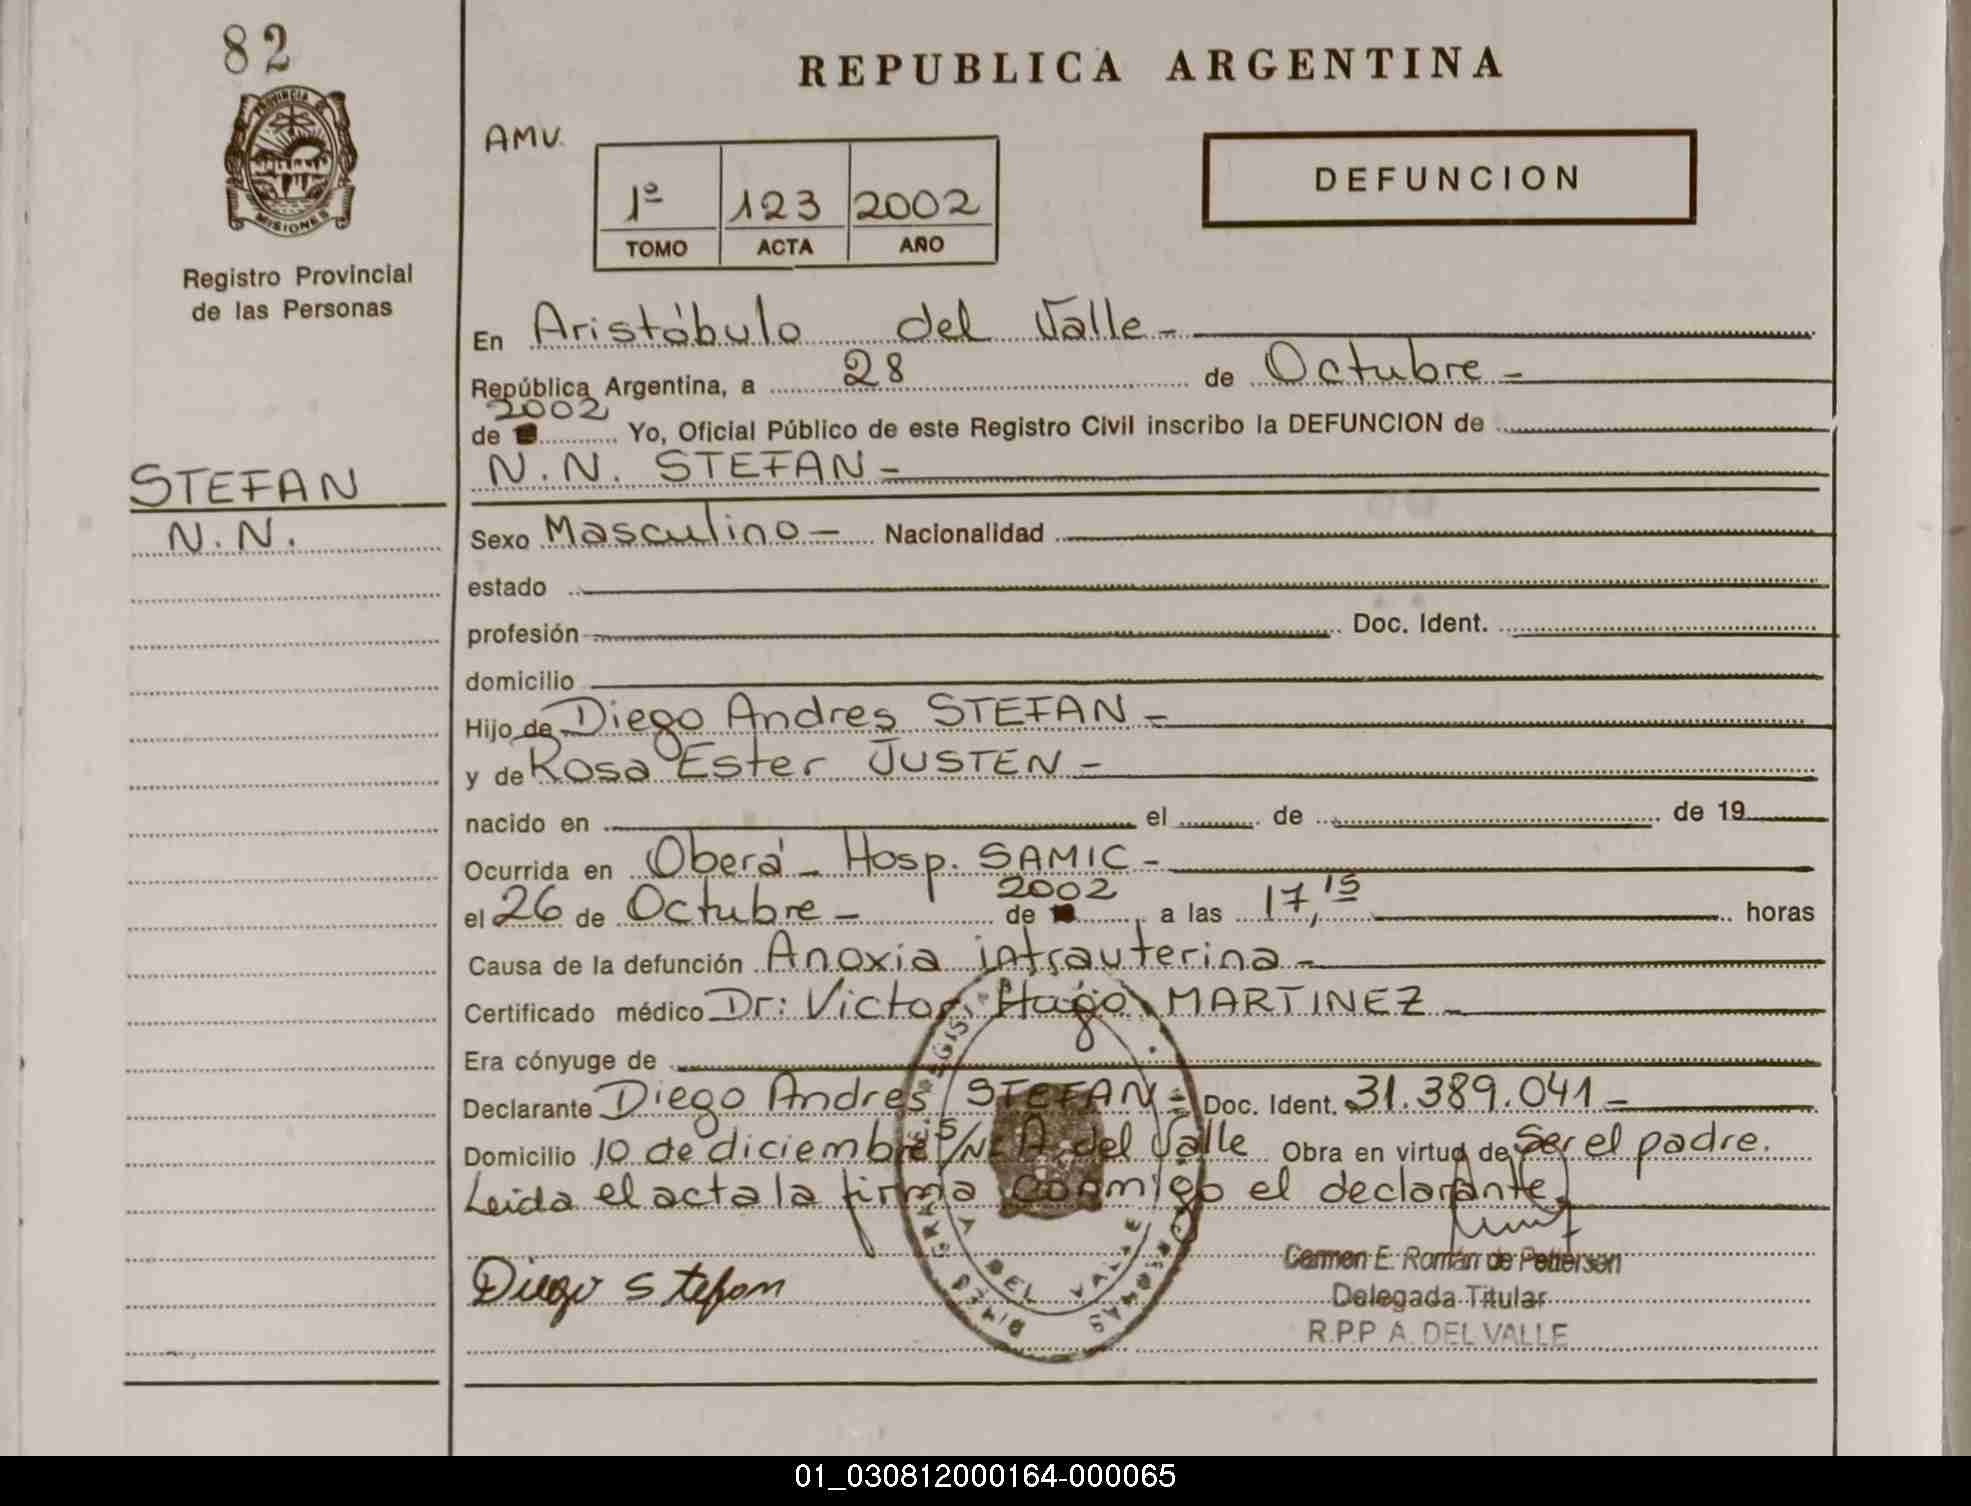 82
PROVINCIA DE
MISIONES
Registro Provincial
de las Personas
STEFAN
N.N.
REPUBLICA ARGENTINA
AMV.
1º 123 2002
TOMO ACTA AÑO
DEFUNCION
En Aristóbulo del Valle-
República Argentina, a 28 de Octubre-
2002
de Yo, Oficial Público de este Registro Civil inscribo la DEFUNCION de
N.N. STEFAN-
Sexo Masculino- Nacionalidad
estado
profesión Doc. Ident.
domicilio
Hijo de Diego Andres STEFAN-
y de Rosa Ester JUSTEN-
nacido en el de de 19
Ocurrida en Oberá- Hosp. SAMIC-
el 26 de Octubre- de 2002 a las 17,15 horas
Causa de la defunción Anoxia intrauterina-
Certificado médico Dr: Victor Hugo MARTINEZ-
Era cónyuge de
Declarante Diego Andres STEFAN- Doc. Ident. 31.389.041-
Domicilio 10 de diciembre S/Nº A. del Valle Obra en virtud de Ser el padre.
Leida el acta la firma conmigo el declarante.
Diego Stefan
Carmen E. Román de Pettersen
Delegada Titular
R.P.P A. DEL VALLE
DEL VALLE
01_030812000164-000065